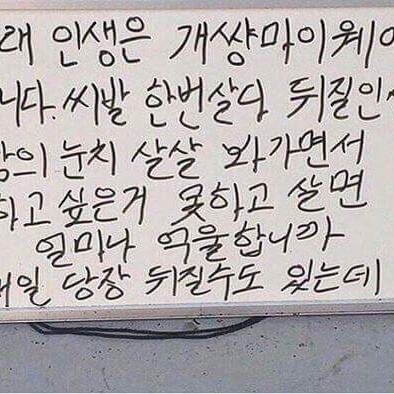 래 인생은 개썅마이웨이
니다. 씨발 한번살다 뒤질인
의 눈치 살살 봐가면서
하고싶은거 못하고 살면
얼마나 억울합니까
내일 당장 뒤질수도 있는데